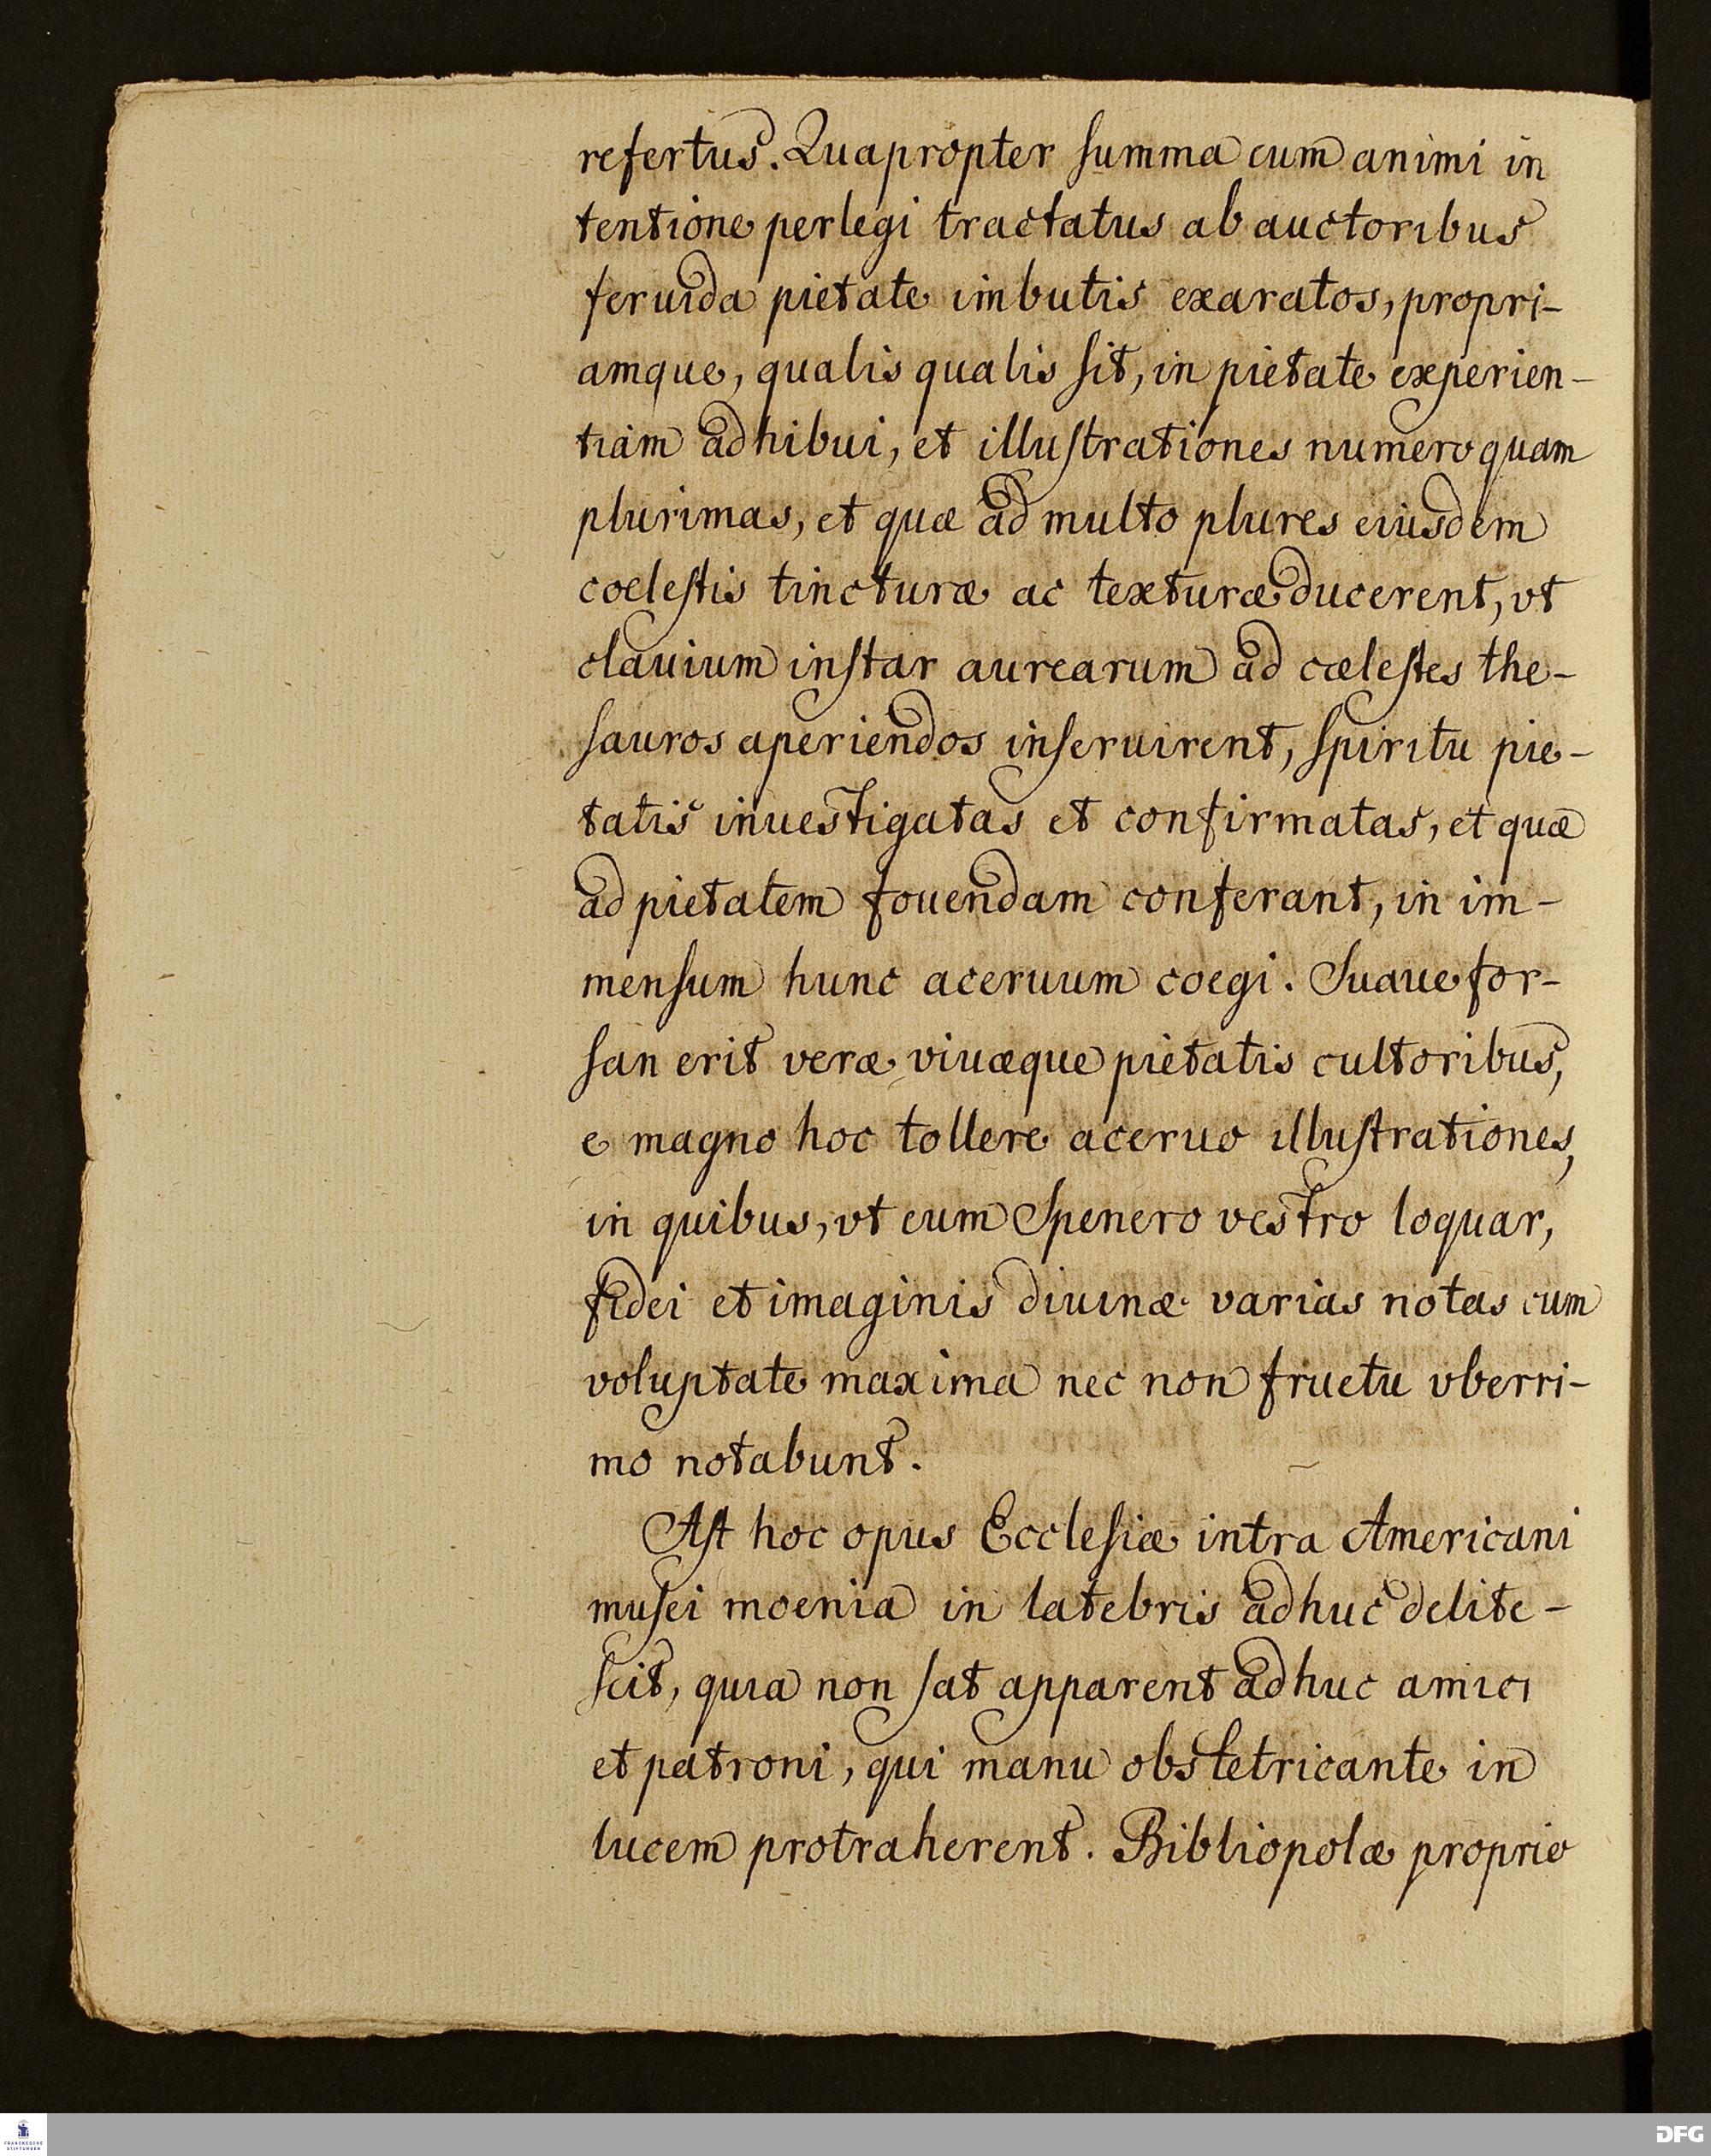 refertus. Quapropter summa cum animi in
tentione perlegi tractatus ab auctoribus
feruida pietate imbutis exaratos, propri-
amque, qualis qualis sit, in pietate experien-
tiam adhibui, et illustrationes numero quam
plurimas, et quæ ad multo plures eiusdem
coelestis tincturæ ac texturæ ducerent, vt
clauium instar aurearum ad cælestes the-
sauros aperiendos inseruirent, spiritu pie-
tatis inuestigatas et confirmatas, et quæ
ad pietatem fouendam conferant, in im-
mensum hunc aceruum coegi. Suaue for-
san erit veræ viuæque pietatis cultoribus,
e magno hoc tollere aceruo illustrationes,
in quibus, vt cum Spenero vestro loquar,
fidei et imaginis diuinæ varias notas cum
voluptate maxima nec non fructu vberri-
mo notabunt.
Ast hoc opus Ecclesiæ intra Americani
musei moenia in latebris adhuc delite-
scit, quia non sat apparent adhuc amici
et patroni, qui manu obstetricante in
lucem protraherent. Bibliopolæ proprio
FRANCKESCHE
STIFTUNGEN
DFG